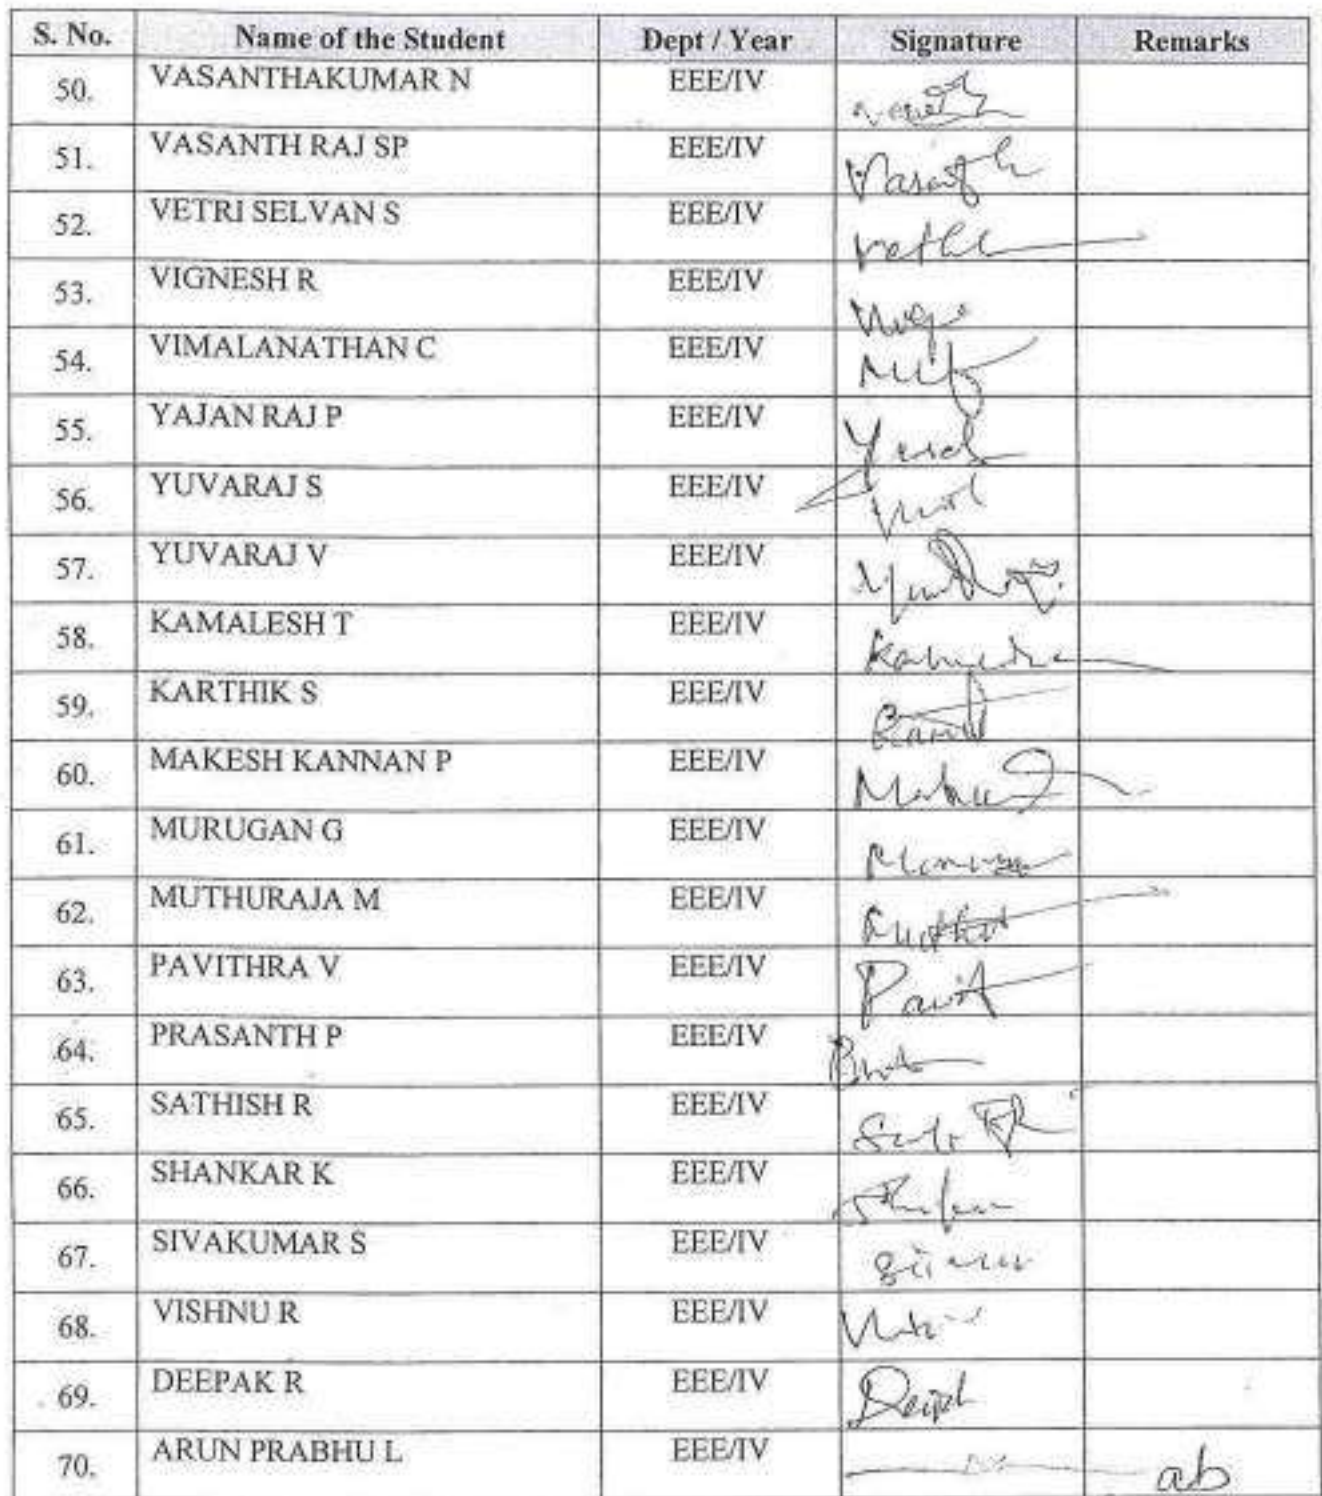 S. No. Name of the Student Dept / Year Signature Remarks
50. VASANTHAKUMAR N EEE/IV
51. VASANTH RAJ SP EEE/IV Vasanth
52. VETRI SELVAN S EEE/IV
53. VIGNESH R EEE/IV
54. VIMALANATHAN C EEE/IV
55. YAJAN RAJ P EEE/IV
56. YUVARAJ S EEE/IV
57. YUVARAJ V EEE/IV
58. KAMALESH T EEE/IV
59. KARTHIK S EEE/IV
60. MAKESH KANNAN P EEE/IV
61. MURUGAN G EEE/IV
62. MUTHURAJA M EEE/IV
63. PAVITHRA V EEE/IV
64. PRASANTH P EEE/IV
65. SATHISH R EEE/IV
66. SHANKAR K EEE/IV
67. SIVAKUMAR S EEE/IV
68. VISHNU R EEE/IV
69. DEEPAK R EEE/IV
70. ARUN PRABHU L EEE/IV ab